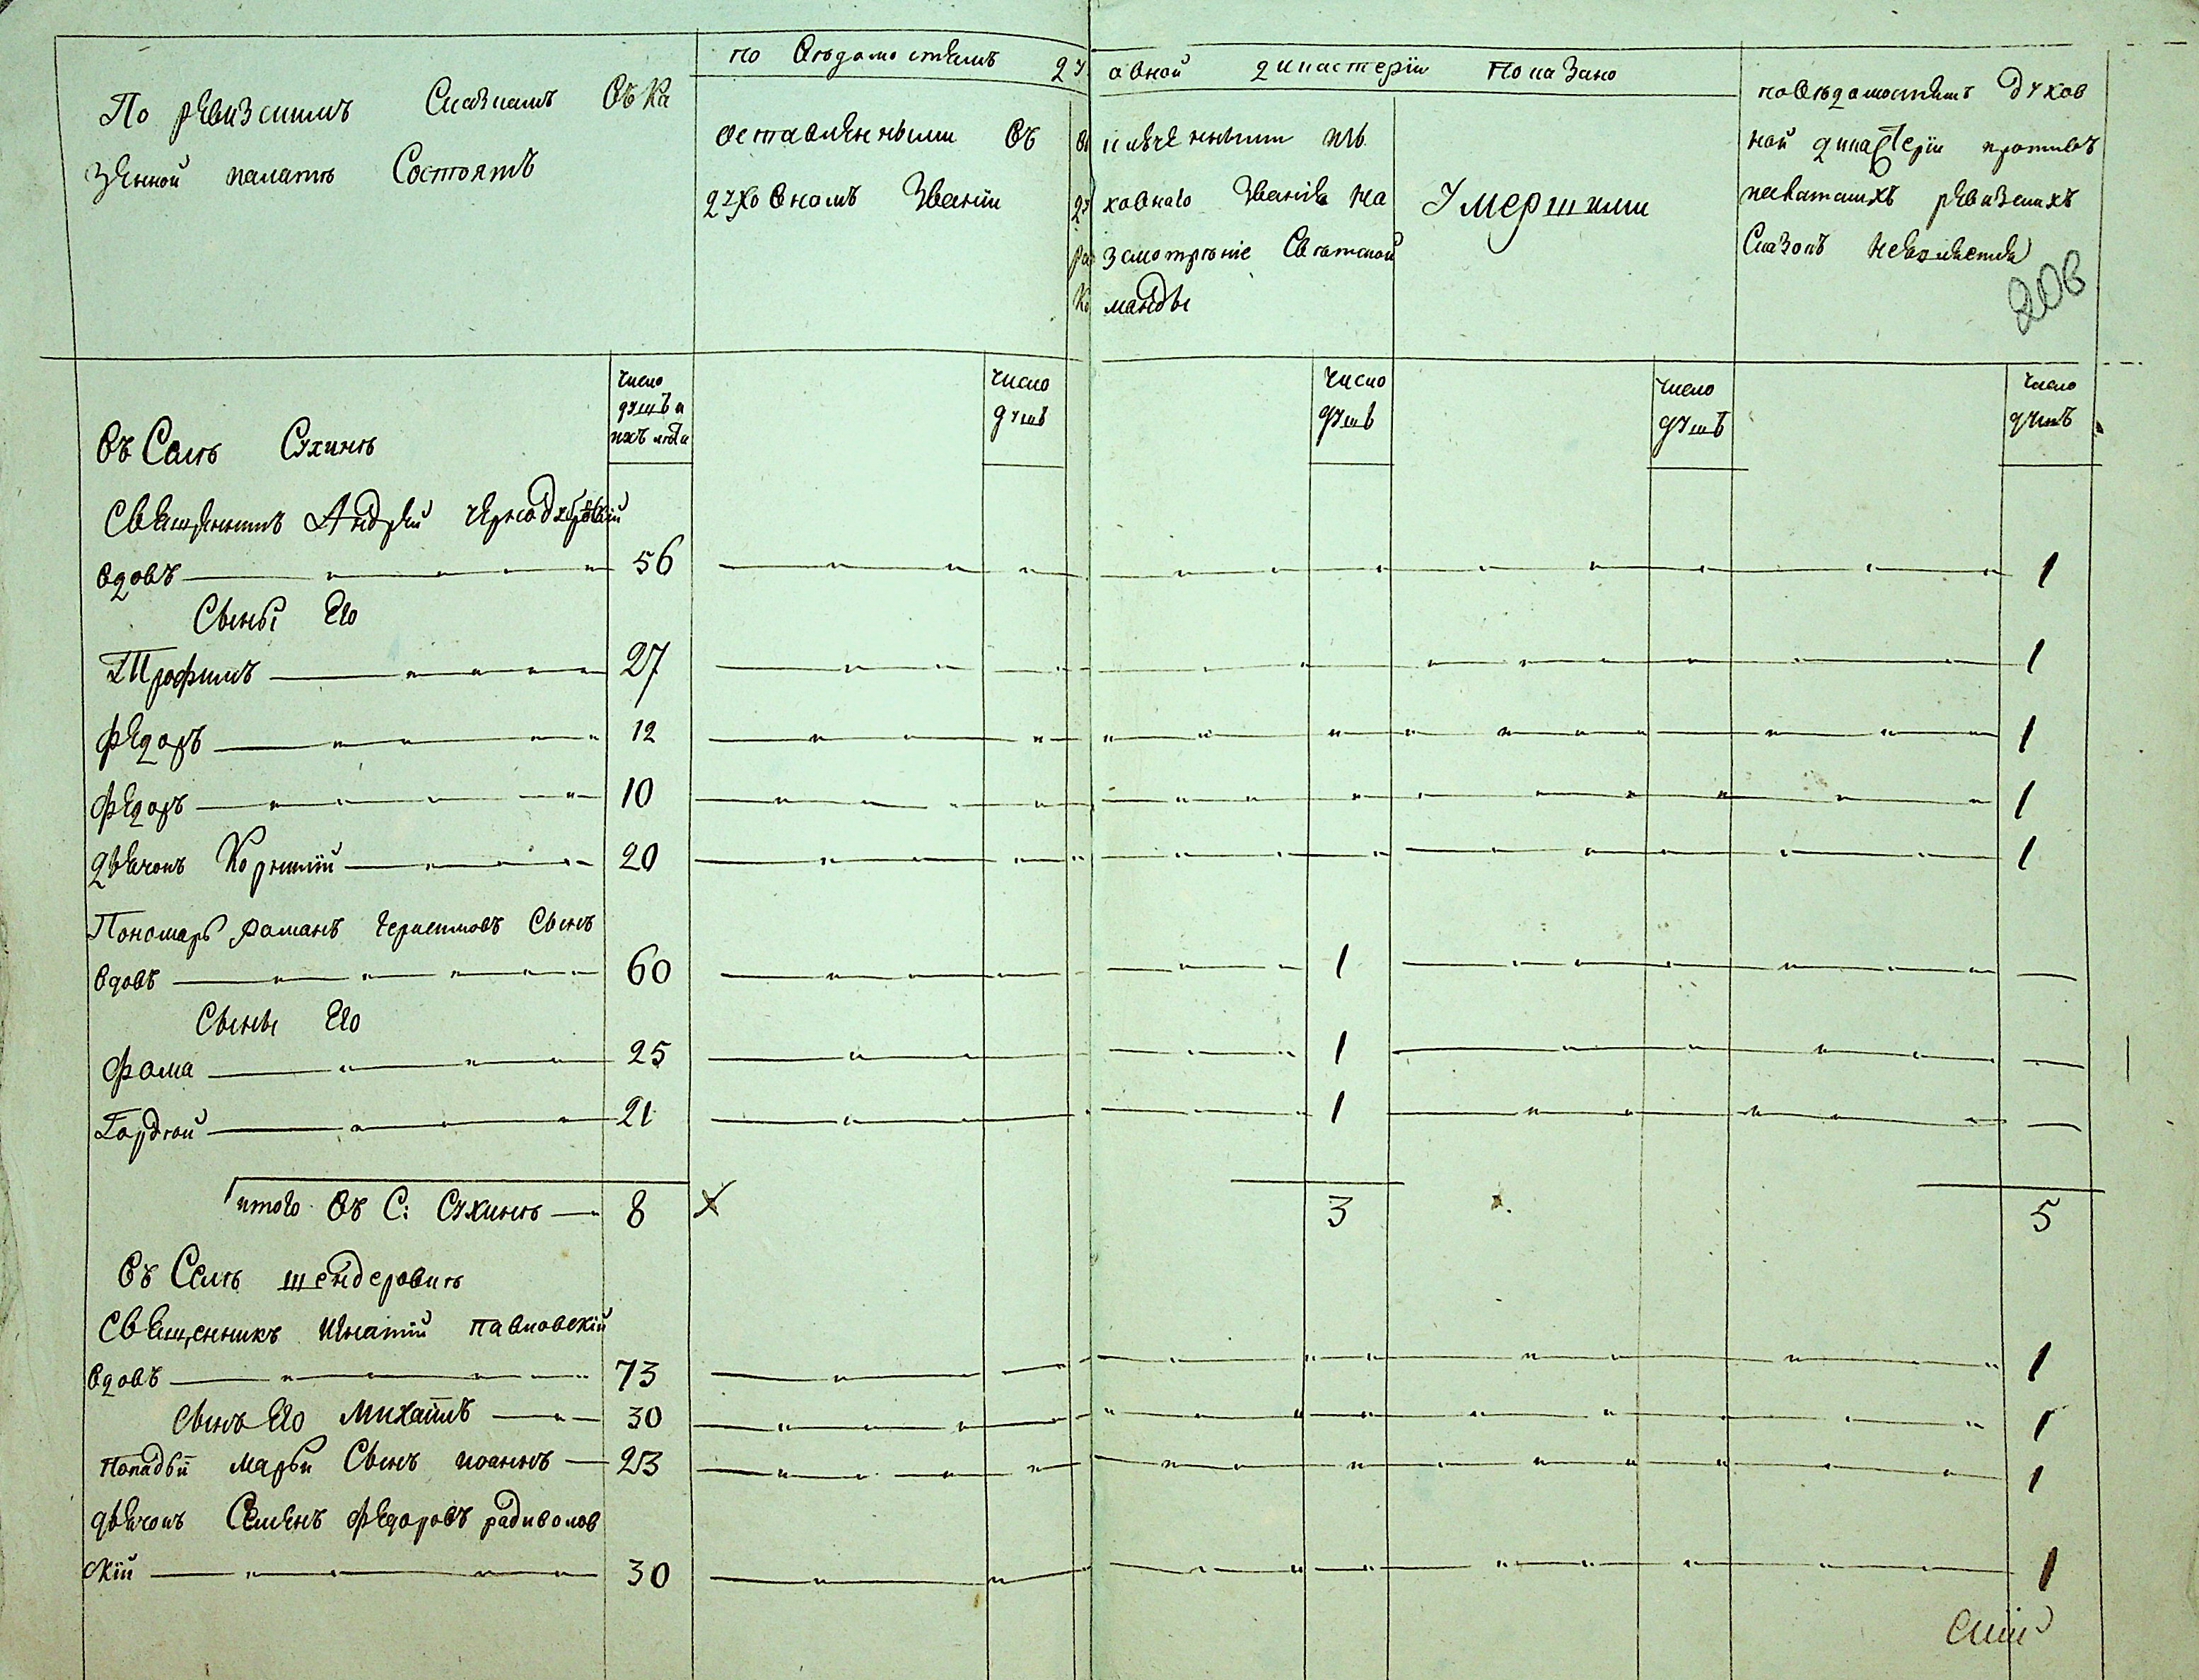 По ревизскимъ Сказкамъ Въ Ка
зенной палатѣ Состоятъ
по Вѣдомостямъ духовной дикастеріи показано
оставленными въ
духовномъ Званіи
исключенными изъ
духовнаго Званія на
разсмотрѣніе Свѣтской
Команды
Умершими
по вѣдомостямъ духов
ной дикастеріи противъ
ревизскихъ
Сказокъ неявляется
208
число
душъ и
ихъ лѣта
число
душъ
число
душъ
число
душъ
число
душъ
Въ Селѣ Сухинѣ
Священникъ Андрей
вдовъ 56 1
Сыны Его
Трофимъ 27 1
Федоръ 12 1
Федоръ 10 1
дьячокъ Корнилій 20 1
Пономарь Романъ Сынъ
вдовъ 60 1
Сыны Его
Фома 25 1
Гордѣй 21 1
итого Въ С: Сухинѣ 8 3 5
Въ Селѣ шендеровкѣ
Священникъ Игнатій павловскій
вдовъ 73 1
сынъ Его Михаилъ 30 1
попадьи марьи Сынъ иоаннъ 23 1
дьячокъ Семенъ Федоровъ радиволов
скій 30 1